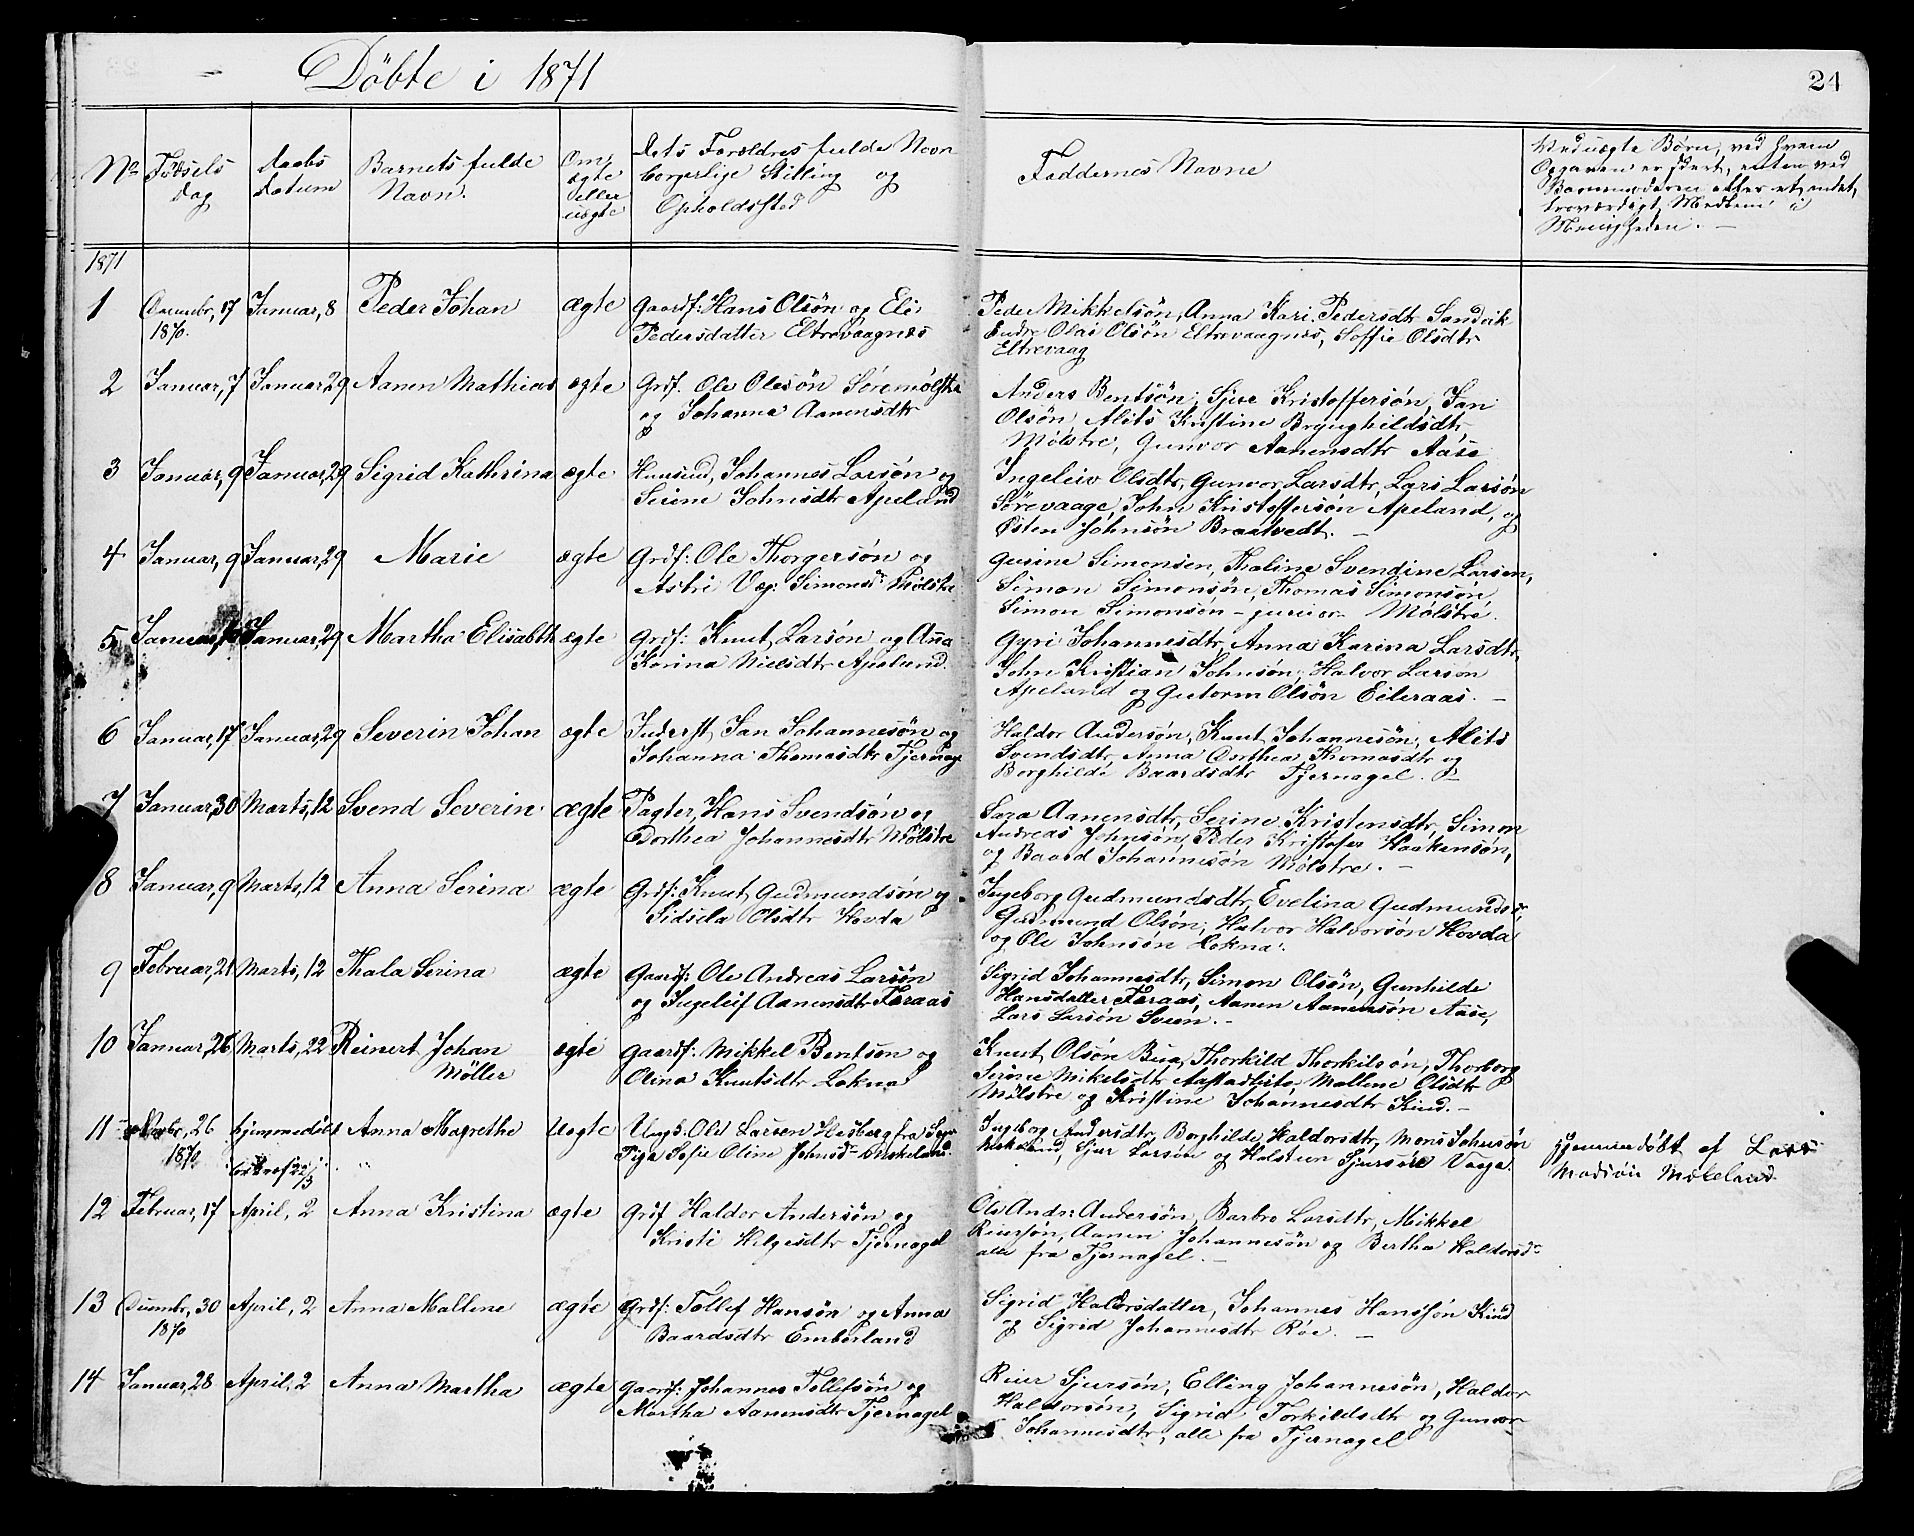 Döbte i 1871
24
No
Födsels
Dag
Daabs
Datum
Barnets fulde
Navn.
Om
ægte
eller
uægte
Dets Foræeldres fulde Navn
borgerlige Stilling og
Opholdssted
Faddernes Navne
Ved uægte Börn, ved hvem
Opgaven er skeet, enten ved
Barnemoderen eller et andet,
troværdigt Medlem i
Menigheden. -
1871
1 Decembr, 17 Januar, 8 Peder Johan ægte Gaardf: Hans Olsön og Eli
1870. Pedersdatter Eltrevaagnes
Peder Mikkelsön, Anna Kari Pedersdtr Sandvik
Endre Olai Olsön Eltrevaagnes, Soffie Olsdtr
Eltrevaag
2 Januar, 7 Januar 29 Aanen Mathias ægte Grdf. Ole Olesön
og Johanna Aanensdtr
Anders Bentsön, Sjur Kristoffersön, Jan
Olsön, Alits Kristine Brynghildsdtr
Mölstre, Gunvor Aanensdtr Aase
3 Januar, 9 Januar, 29 Sigrid Kathrina ægte Huusmd, Johannes Larsön og
Serine Johnsdtr Apeland
Ingeleiv Olsdtr, Gunvor Larsdtr, Lars Larsön
Sörevaage, John Kristoffersön Apeland, og
Östen Johnsön Braatvedt. -
4 Januar, 9 Januar, 29 Marie ægte Grdf: Ole Thorgersön og
Astri Simonsdr Mölstre
Gurine Simonsen, Thaline Svendine Larsen,
Simon Simonsön, Thomas Simonsön,
Simon Simonsön - junior - Mölstre.
5 Januar Januar, 29 Martha Elisabth ægte Grdf: Knut Larsön og Ana
Karina Nielsdtr Apeland.
Gyri Johannesdtr, Anna Karina Larsdtr,
John Kristian Johnsön, Halvor Larson
Apeland og Gutorm Olsön Eileraas. -
6 Januar, 17 Januar, 29 Severin Johan ægte Inderst, Jan Johannesön og
Johanna Thomasdtr Tjernag
Haldor Andersön, Knut Johannesön, Alits
Svendsdtr, Anna Dorthea Thomasdtr og
Borghilde Baardsdtr Tjernagel. -
7 Januar, 30 Marts, 12 Svend Severin ægte Pagter, Hans Svendsön og
Dorthea Johannesdtr Mölstre
Sara Aanensdtr, Serine Kristensdtr, Simon
Andreas Johnsön, Peder Kristofer Haakensön,
og Baard Johannesön Mölstre. -
8 Januar, 9 Marts, 12 Anna Serina ægte Grdf: Knut Gudmundsön og
Sidsela Olsdtr Hovda
Ingeborg Gudmundsdtr, Evelina Gudmundsdr,
Gudmund Olsön, Halvor Halvorsön Hovda
og Ole Johnsön Lokna.
9 Februar, 21 Marts, 12 Thala Serina ægte Gaardf: Ole Andreas Larsön
og Ingeleif Aanensdtr Foraas
Sigrid Johannesdtr, Simon Olsön, Gunhilde
Hansdatter Foraas, Aanen Aanensön Aase,
Lars Larsön Sveen. -
10 Januar, 26 Marts, 22 Reinert Johan ægte Gaardf: Mikkel Bentsen og
Möller Olina Knutsdtr Lokna
Knut Olsön Bua, Thorkild Thorkilsön, Thorborg
Serine Mikelsdtr Mallene Olsdtr
Mölstre og Kristine Johannesdtr Kind. -
11 26 hjemmedöbt Anna Magrethe Uægte Ungk. Ole Larsen fra
1870 Pige Sofie Oline Johnsdr
22/3 "
Ingeborg Andersdtr, Borghilde Haldorsdtr, Mons Johnsön
Sjur Larsön og Halsteen Sjursön Vaage.
Hjemmedöbt af Lars
Madsön Mækeland
12 Februar, 17 April, 2 Anna Kristina ægte Grdf Haldor Andersön og
Kristi Helgesdtr Tjernagel
Ole Andr: Andersön, Barbro Larsdtr, Mikkel
Reiersön, Aanen Johannesön og Bertha Haldorsdr
alle fra Tjernagel. -
13 Decembr, 30 April, 2 Anna Mallene ægte Grdf: Tollef Hansön og Anna
1870 Baardsdtr Emberland
Sigrid Haldorsdatter, Johannes Hanssön Kind
og Sigrid Johannesdtr Röe. -
14 Januar, 28 April, 2 Anna Martha ægte Gaardf: Johannes Tollefsön og
Martha Aanensdtr Tjernagel
Reier Sjursön, Elling Johannesön, Haldor
Haldorsön, Sigrid Torkildsdtr og Gunvor
Johannesdtr, alle fra Tjernagel